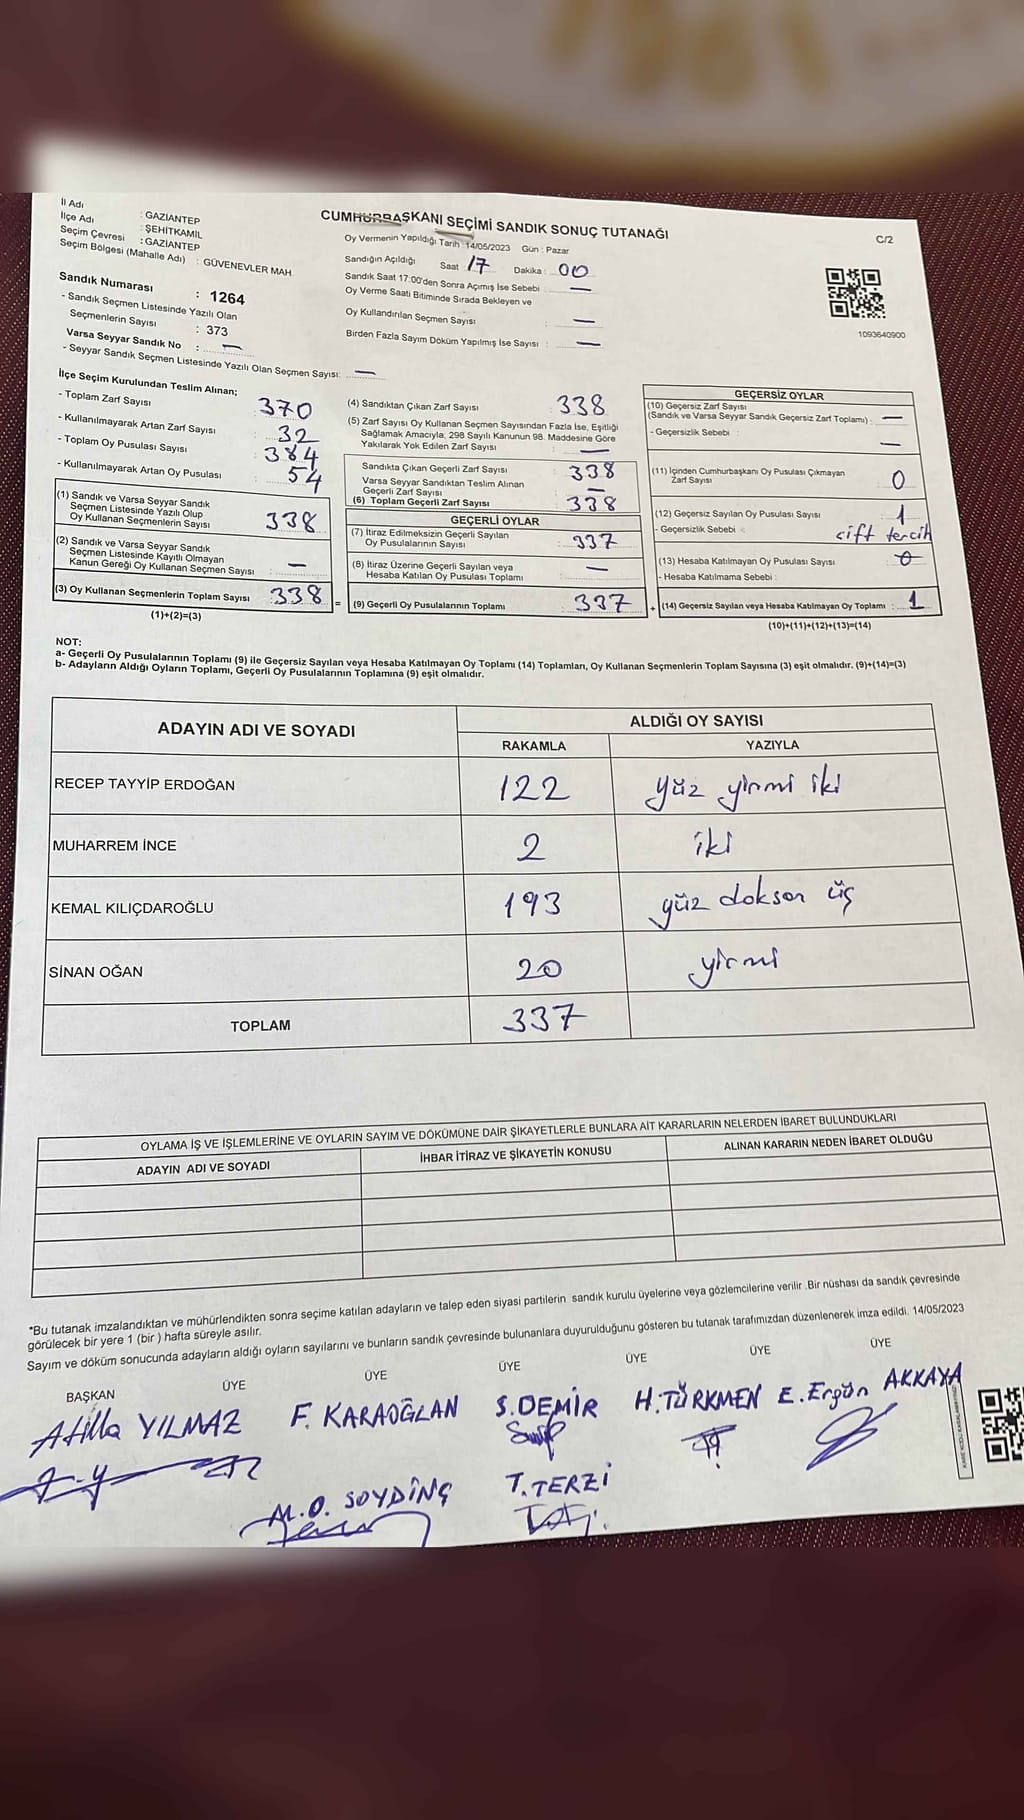 İl Adı : GAZİANTEP
İlçe Adı : ŞEHİTKAMİL
Seçim Çevresi : GAZİANTEP
Seçim Bölgesi (Mahalle Adı) : GÜVENEVLER MAH
CUMHURBAŞKANI SEÇİMİ SANDIK SONUÇ TUTANAĞI
C/2
Oy Vermenin Yapıldığı Tarih : 14/05/2023 Gün : Pazar
Sandığın Açıldığı Saat : 17 Dakika : 00
Sandık Saat 17:00'den Sonra Açımış İse Sebebi : —
Oy Verme Saati Bitiminde Sırada Bekleyen ve
Oy Kullandırılan Seçmen Sayısı : —
Birden Fazla Sayım Döküm Yapılmış İse Sayısı : —
1093640900
Sandık Numarası : 1264
- Sandık Seçmen Listesinde Yazılı Olan
Seçmenlerin Sayısı : 373
Varsa Seyyar Sandık No : —
- Seyyar Sandık Seçmen Listesinde Yazılı Olan Seçmen Sayısı: —
İlçe Seçim Kurulundan Teslim Alınan;
- Toplam Zarf Sayısı : 370
- Kullanılmayarak Artan Zarf Sayısı : 32
- Toplam Oy Pusulası Sayısı : 384
- Kullanılmayarak Artan Oy Pusulası : 54
(1) Sandık ve Varsa Seyyar Sandık
Seçmen Listesinde Yazılı Olup
Oy Kullanan Seçmenlerin Sayısı : 338
(2) Sandık ve Varsa Seyyar Sandık
Seçmen Listesinde Kayıtlı Olmayan
Kanun Gereği Oy Kullanan Seçmen Sayısı : —
(3) Oy Kullanan Seçmenlerin Toplam Sayısı : 338 =
(1)+(2)=(3)
(4) Sandıktan Çıkan Zarf Sayısı : 338
(5) Zarf Sayısı Oy Kullanan Seçmen Sayısından Fazla İse, Eşitliği
Sağlamak Amacıyla; 298 Sayılı Kanunun 98. Maddesine Göre
Yakılarak Yok Edilen Zarf Sayısı : —
Sandıkta Çıkan Geçerli Zarf Sayısı : 338
Varsa Seyyar Sandıktan Teslim Alınan
Geçerli Zarf Sayısı : —
(6) Toplam Geçerli Zarf Sayısı : 338
GEÇERLİ OYLAR
(7) İtiraz Edilmeksizin Geçerli Sayılan
Oy Pusulalarının Sayısı : 337
(8) İtiraz Üzerine Geçerli Sayılan veya
Hesaba Katılan Oy Pusulası Toplamı : —
(9) Geçerli Oy Pusulalarının Toplamı : 337 +
GEÇERSİZ OYLAR
(10) Geçersiz Zarf Sayısı
(Sandık ve Varsa Seyyar Sandık Geçersiz Zarf Toplamı) : —
- Geçersizlik Sebebi : —
(11) İçinden Cumhurbaşkanı Oy Pusulası Çıkmayan
Zarf Sayısı : 0
(12) Geçersiz Sayılan Oy Pusulası Sayısı : 1
- Geçersizlik Sebebi : çift tercih
(13) Hesaba Katılmayan Oy Pusulası Sayısı : 0
- Hesaba Katılmama Sebebi :
(14) Geçersiz Sayılan veya Hesaba Katılmayan Oy Toplamı : 1
(10)+(11)+(12)+(13)=(14)
NOT:
a- Geçerli Oy Pusulalarının Toplamı (9) ile Geçersiz Sayılan veya Hesaba Katılmayan Oy Toplamı (14) Toplamları, Oy Kullanan Seçmenlerin Toplam Sayısına (3) eşit olmalıdır. (9)+(14)=(3)
b- Adayların Aldığı Oyların Toplamı, Geçerli Oy Pusulalarının Toplamına (9) eşit olmalıdır.
ADAYIN ADI VE SOYADI ALDIĞI OY SAYISI
RAKAMLA YAZIYLA
RECEP TAYYİP ERDOĞAN 122 yüz yirmi iki
MUHARREM İNCE 2 iki
KEMAL KILIÇDAROĞLU 193 yüz doksan üç
SİNAN OĞAN 20 yirmi
TOPLAM 337
OYLAMA İŞ VE İŞLEMLERİNE VE OYLARIN SAYIM VE DÖKÜMÜNE DAİR ŞİKAYETLERLE BUNLARA AİT KARARLARIN NELERDEN İBARET BULUNDUKLARI
ADAYIN ADI VE SOYADI İHBAR İTİRAZ VE ŞİKAYETİN KONUSU ALINAN KARARIN NEDEN İBARET OLDUĞU
*Bu tutanak imzalandıktan ve mühürlendikten sonra seçime katılan adayların ve talep eden siyasi partilerin sandık kurulu üyelerine veya gözlemcilerine verilir .Bir nüshası da sandık çevresinde
görülecek bir yere 1 (bir ) hafta süreyle asılır.
Sayım ve döküm sonucunda adayların aldığı oyların sayılarını ve bunların sandık çevresinde bulunanlara duyurulduğunu gösteren bu tutanak tarafımızdan düzenlenerek imza edildi. 14/05/2023
BAŞKAN ÜYE ÜYE ÜYE ÜYE ÜYE ÜYE
Atilla YILMAZ F. KARAOĞLAN Ş. DEMİR H. TÜRKMEN E. Ergün AKKAYA
M.O. SOYDİNÇ T. TERZİ